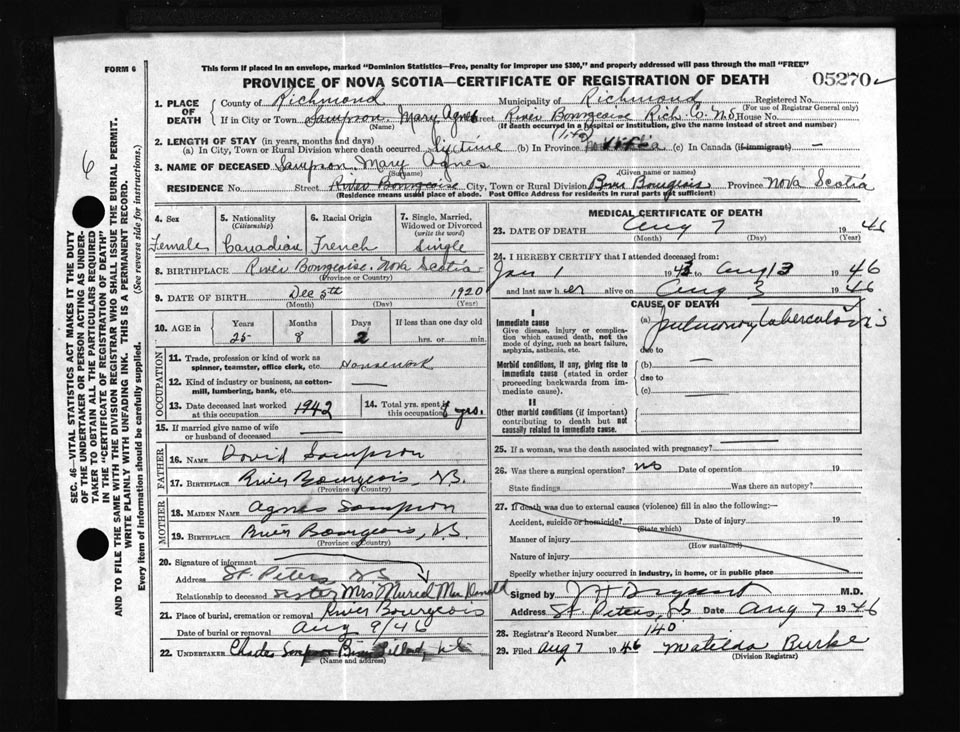 This form if placed in an envelope, marked "Dominion Statistics—Free, penalty for improper use $300," and properly addressed will pass through the mail "FREE"
FORM 6
PROVINCE OF NOVA SCOTIA—CERTIFICATE OF REGISTRATION OF DEATH
05270
6
SEC. 46—VITAL STATISTICS ACT MAKES IT THE DUTY
OF THE UNDERTAKER OR PERSON ACTING AS UNDER-
TAKER TO OBTAIN ALL THE PARTICULARS REQUIRED
IN THE "CERTIFICATE OF REGISTRATION OF DEATH"
AND TO FILE THE SAME WITH THE DIVISION REGISTRAR WHO SHALL ISSUE THE BURIAL PERMIT.
WRITE PLAINLY WITH UNFADING INK. THIS IS A PERMANENT RECORD.
Every item of information should be carefully supplied. (See reverse side for instructions.)
1. PLACE OF DEATH County of Richmond Municipality of Richmond Registered No.
(For use of Registrar General only)
If in City or Town Sampson Mary Agnes Street River Bourgeoise Rich. Co. N.S. House No.
(Name) (If death occurred in a hospital or institution, give the name instead of street and number)
2. LENGTH OF STAY (in years, months and days)
(a) In City, Town or Rural Division where death occurred Lifetime (b) In Province (c) In Canada (if immigrant) —
3. NAME OF DECEASED Sampson Mary Agnes
(Surname) (Given name or names)
RESIDENCE No. Street River Bourgeoise City, Town or Rural Division River Bourgeois Province Nova Scotia
(Residence means usual place of abode. Post Office Address for residents in rural parts not sufficient)
4. Sex Female
5. Nationality (Citizenship) Canadian
6. Racial Origin French
7. Single, Married, Widowed or Divorced (write the word) Single
8. BIRTHPLACE River Bourgeoise. Nova Scotia
(Province or Country)
9. DATE OF BIRTH Dec 5th 1920
(Month) (Day) (Year)
10. AGE in Years 25 Months 8 Days 2 If less than one day old hrs. or min.
OCCUPATION
11. Trade, profession or kind of work as spinner, teamster, office clerk, etc. Housework
12. Kind of industry or business, as cotton-mill, lumbering, bank, etc. —
13. Date deceased last worked at this occupation 1942
14. Total yrs. spent in this occupation yrs.
15. If married give name of wife or husband of deceased —
FATHER
16. NAME David Sampson
17. BIRTHPLACE River Bourgeois, N.S.
(Province or Country)
MOTHER
18. MAIDEN NAME Agnes Sampson
19. BIRTHPLACE River Bourgeois, N.S.
(Province or Country)
20. Signature of informant
Address St. Peters, N.S.
Relationship to deceased sister Mrs
21. Place of burial, cremation or removal River Bourgeois
Date of burial or removal Aug 9/46
22. UNDERTAKER Charles
(Name and address)
MEDICAL CERTIFICATE OF DEATH
23. DATE OF DEATH Aug 7 1946
(Month) (Day) (Year)
24. I HEREBY CERTIFY that I attended deceased from:
Jan 1 1943 to Aug 3 1946
and last saw her alive on Aug 3 1946
CAUSE OF DEATH
I
Immediate cause
Give disease, injury or complication which caused death, not the mode of dying, such as heart failure, asphyxia, asthenia, etc.
(a) Pulmonary tuberculosis
due to
Morbid conditions, if any, giving rise to immediate cause (stated in order proceeding backwards from immediate cause).
(b) —
due to
(c) —
II
Other morbid conditions (if important) contributing to death but not causally related to immediate cause.
25. If a woman, was the death associated with pregnancy? —
26. Was there a surgical operation? no Date of operation 19
State findings Was there an autopsy?
27. If death was due to external causes (violence) fill in also the following:—
Accident, suicide or homicide? Date of injury 19
(State which)
Manner of injury
(How sustained)
Nature of injury
Specify whether injury occurred in industry, in home, or in public place
Signed by M.D.
Address St. Peters, N.S. Date Aug 7 1946
28. Registrar's Record Number 140
29. Filed Aug 7 1946 Matilda Burke
(Division Registrar)